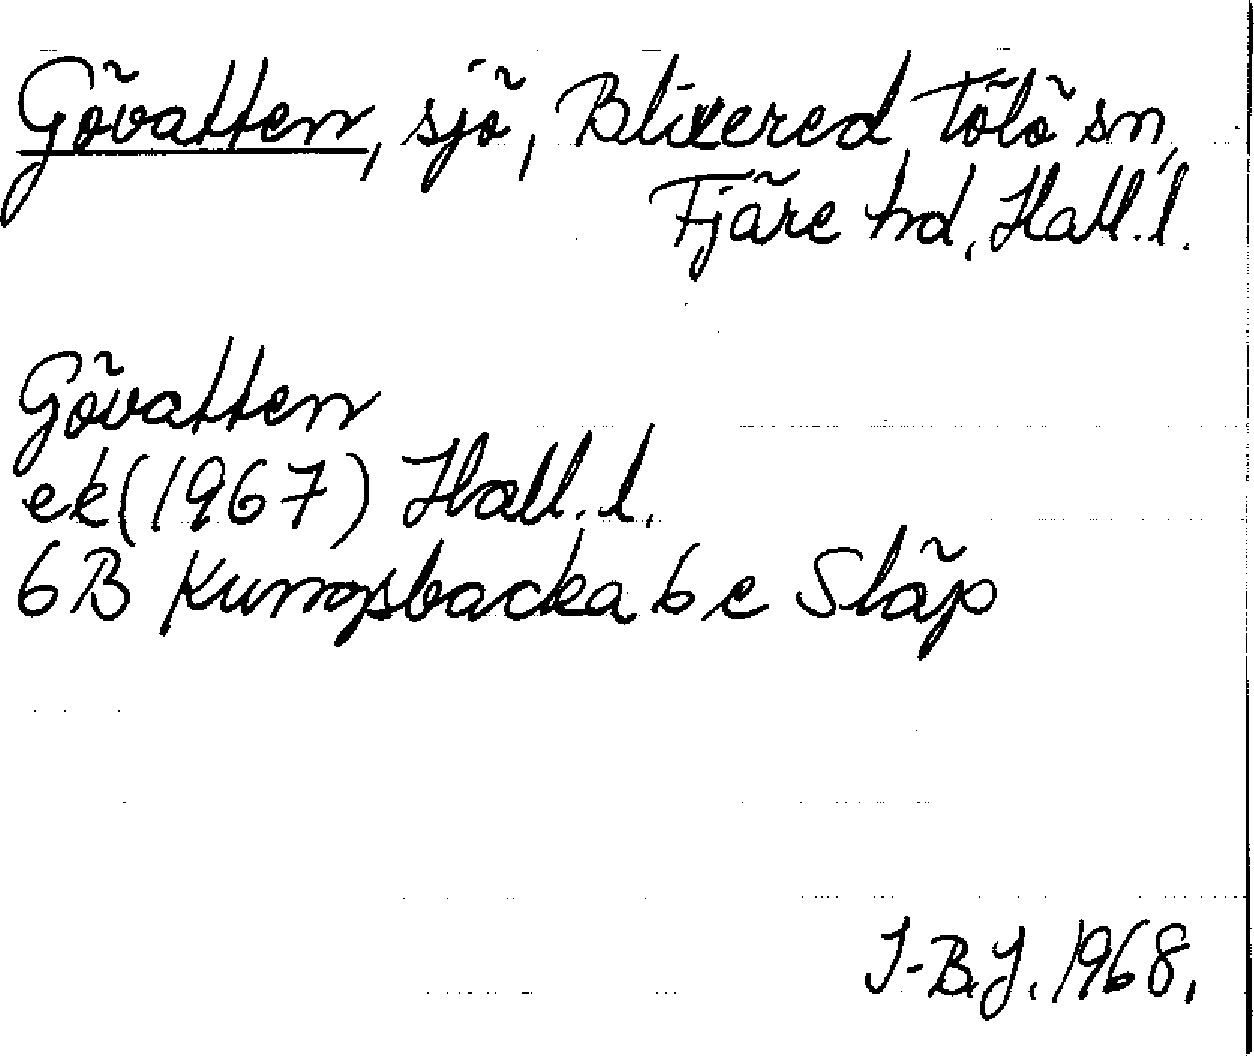 Gövatten, sjö, Blixered, Tölö sn,
Fjäre hd, Hall.l.
Gövatten
ek(1967) Hall. l.
6B Kungsbacka 6 e Släp
I-B.J. 1968.